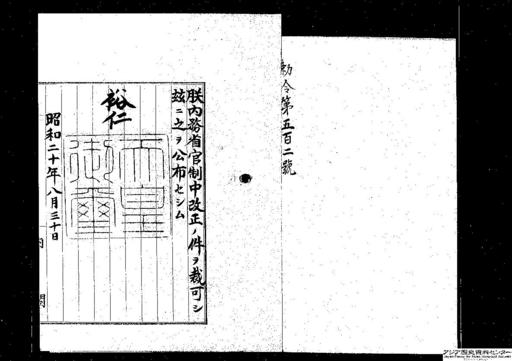 勅令第五百二號
朕内務省官制中改正ノ件ヲ裁可シ
玆ニ之ヲ公布セシム
裕仁
天皇御璽
昭和二十年八月三十日
内閣
アジア歴史資料センター